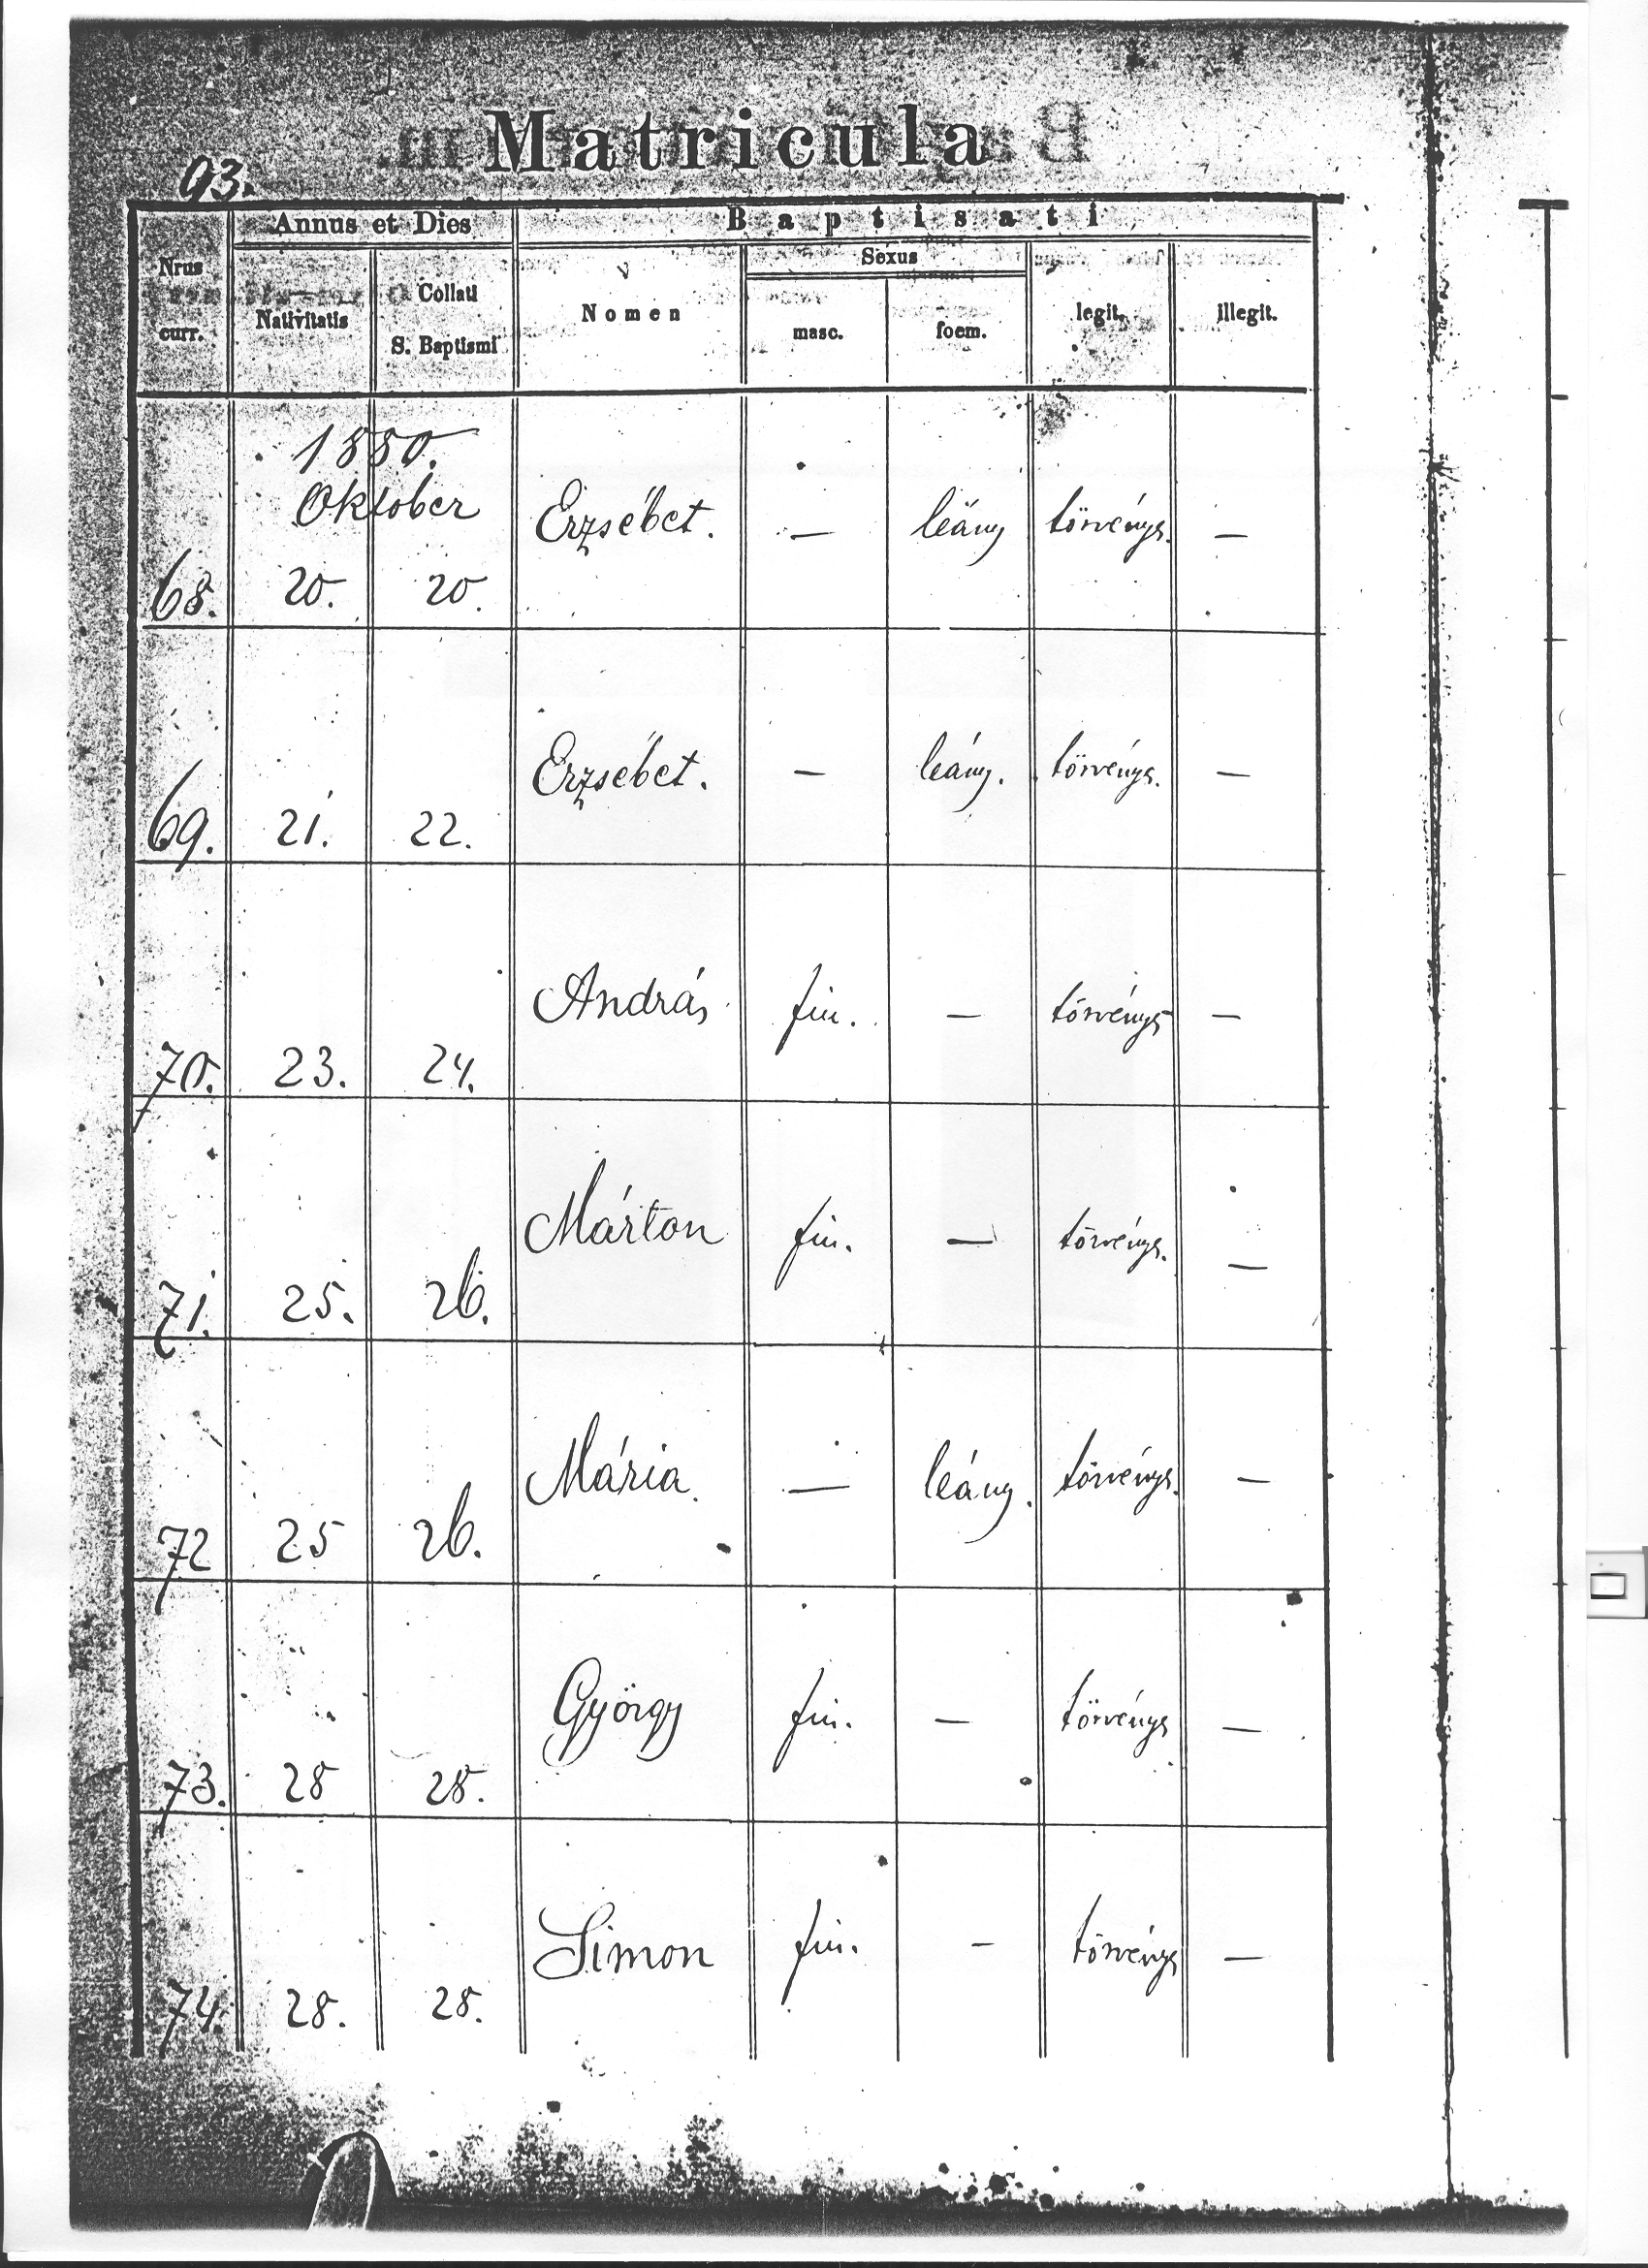 Matricula
93.
Annus et Dies Baptisati
Nrus curr. Nativitatis Collati S. Baptismi Nomen Sexus masc. foem. legit. illegit.
1880.
Oktober
68. 20. 20. Erzsébet. — leány törvénys. —
69. 21. 22. Erzsébet. — leány. törvénys. —
70. 23. 24. András fiu. — törvénys —
71. 25. 26. Márton fiu. — törvénys. —
72 25 26. Mária. — leány. törvénys. —
73. 28 28. György fiu. — törvénys —
74. 28. 28. Simon fiu. — törvénys —